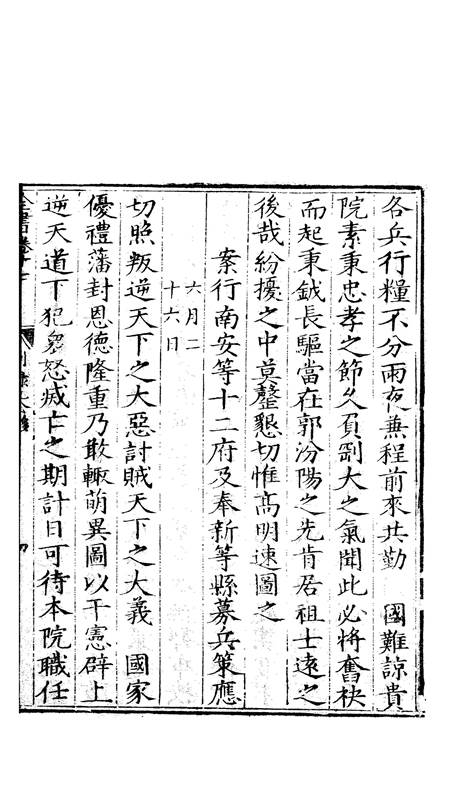 各兵行糧不分雨夜兼程前來共勤　國難諒貴
院素秉忠孝之節久負剛大之氣聞此必將奮袂
而起秉鉞長驅當在郭汾陽之先肯居祖士遠之
後哉紛擾之中莫罄懇切惟高明速圖之
案行南安等十二府及奉新等縣募兵策應
六月二
十六日
切照叛逆天下之大惡討賊天下之大義　國家
優禮藩封恩德隆重乃敢輙萌異圖以干憲辟上
逆天道下犯衆怒滅亡之期計日可待本院職任